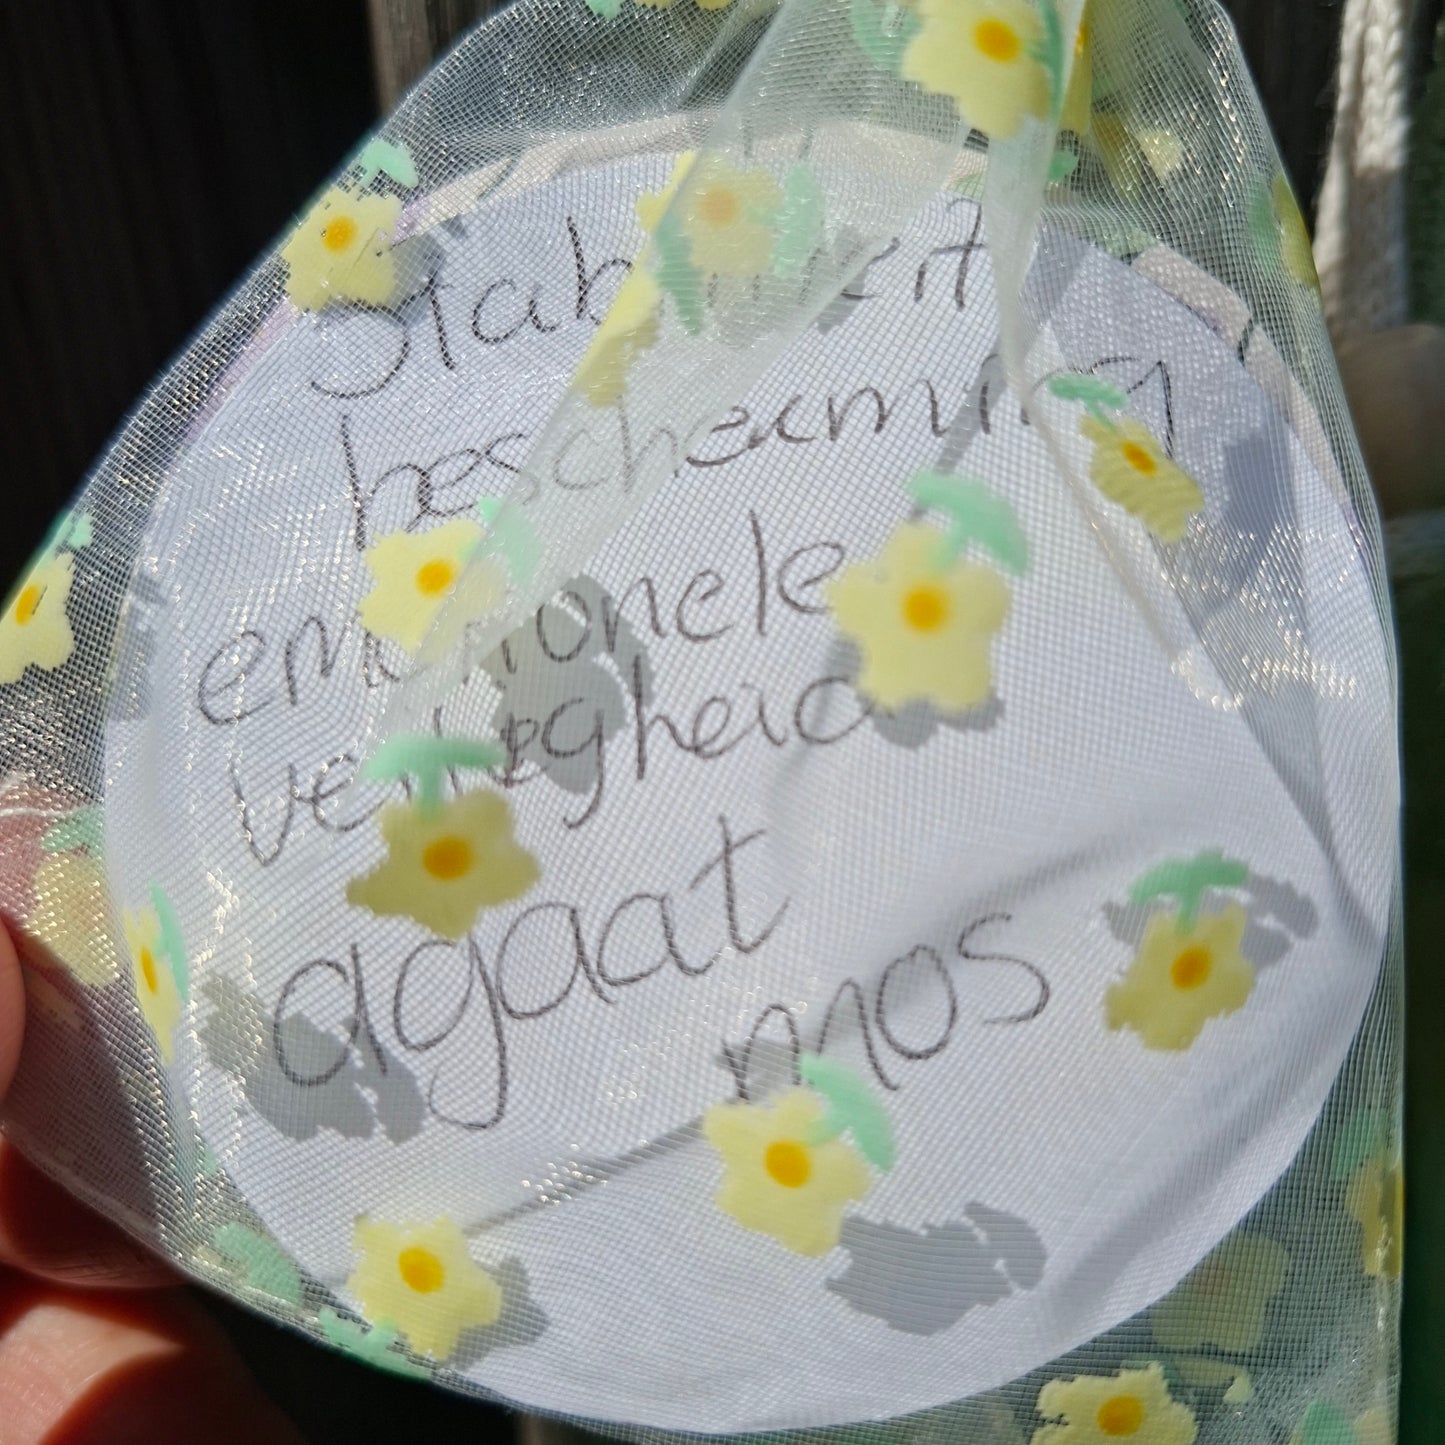 Stabiliteit
bescherming
emotionele
veiligheid
agaat
mos